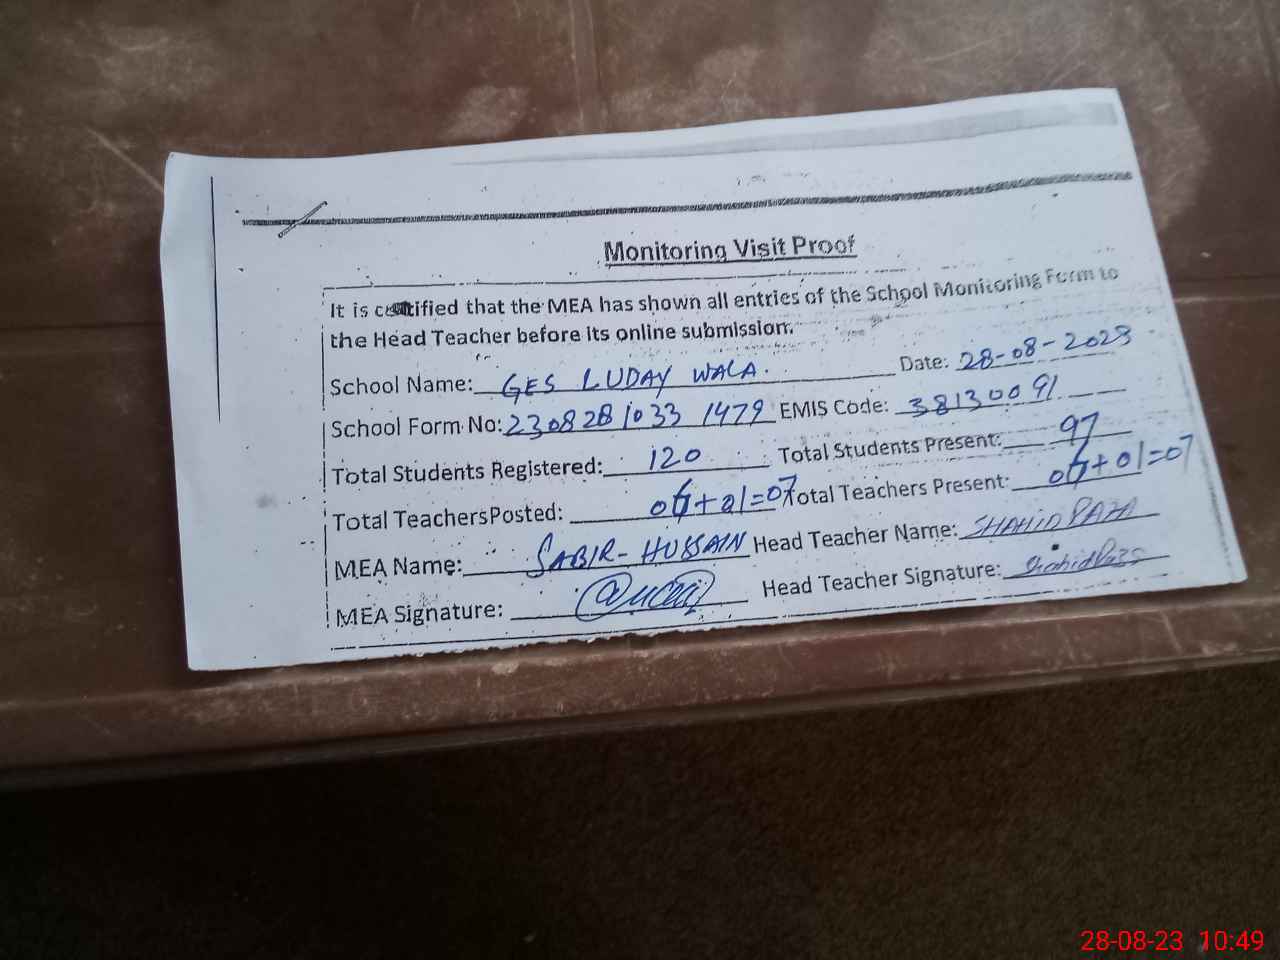 Monitoring Visit Proof
It is certified that the MEA has shown all entries of the School Monitoring Form to
the Head Teacher before its online submission.
School Name: GES LUDAY WALA. Date: 28-08-2023
School Form No: 230828 1033 1479 EMIS Code: 38130091
Total Students Registered: 120 Total Students Present: 97
Total Teachers Posted: 06+01=07 Total Teachers Present: 06+01=07
MEA Name: SABIR-HUSSAIN Head Teacher Name: SHAHID RAZA
MEA Signature: Head Teacher Signature: ShahidRaza
28-08-23 10:49